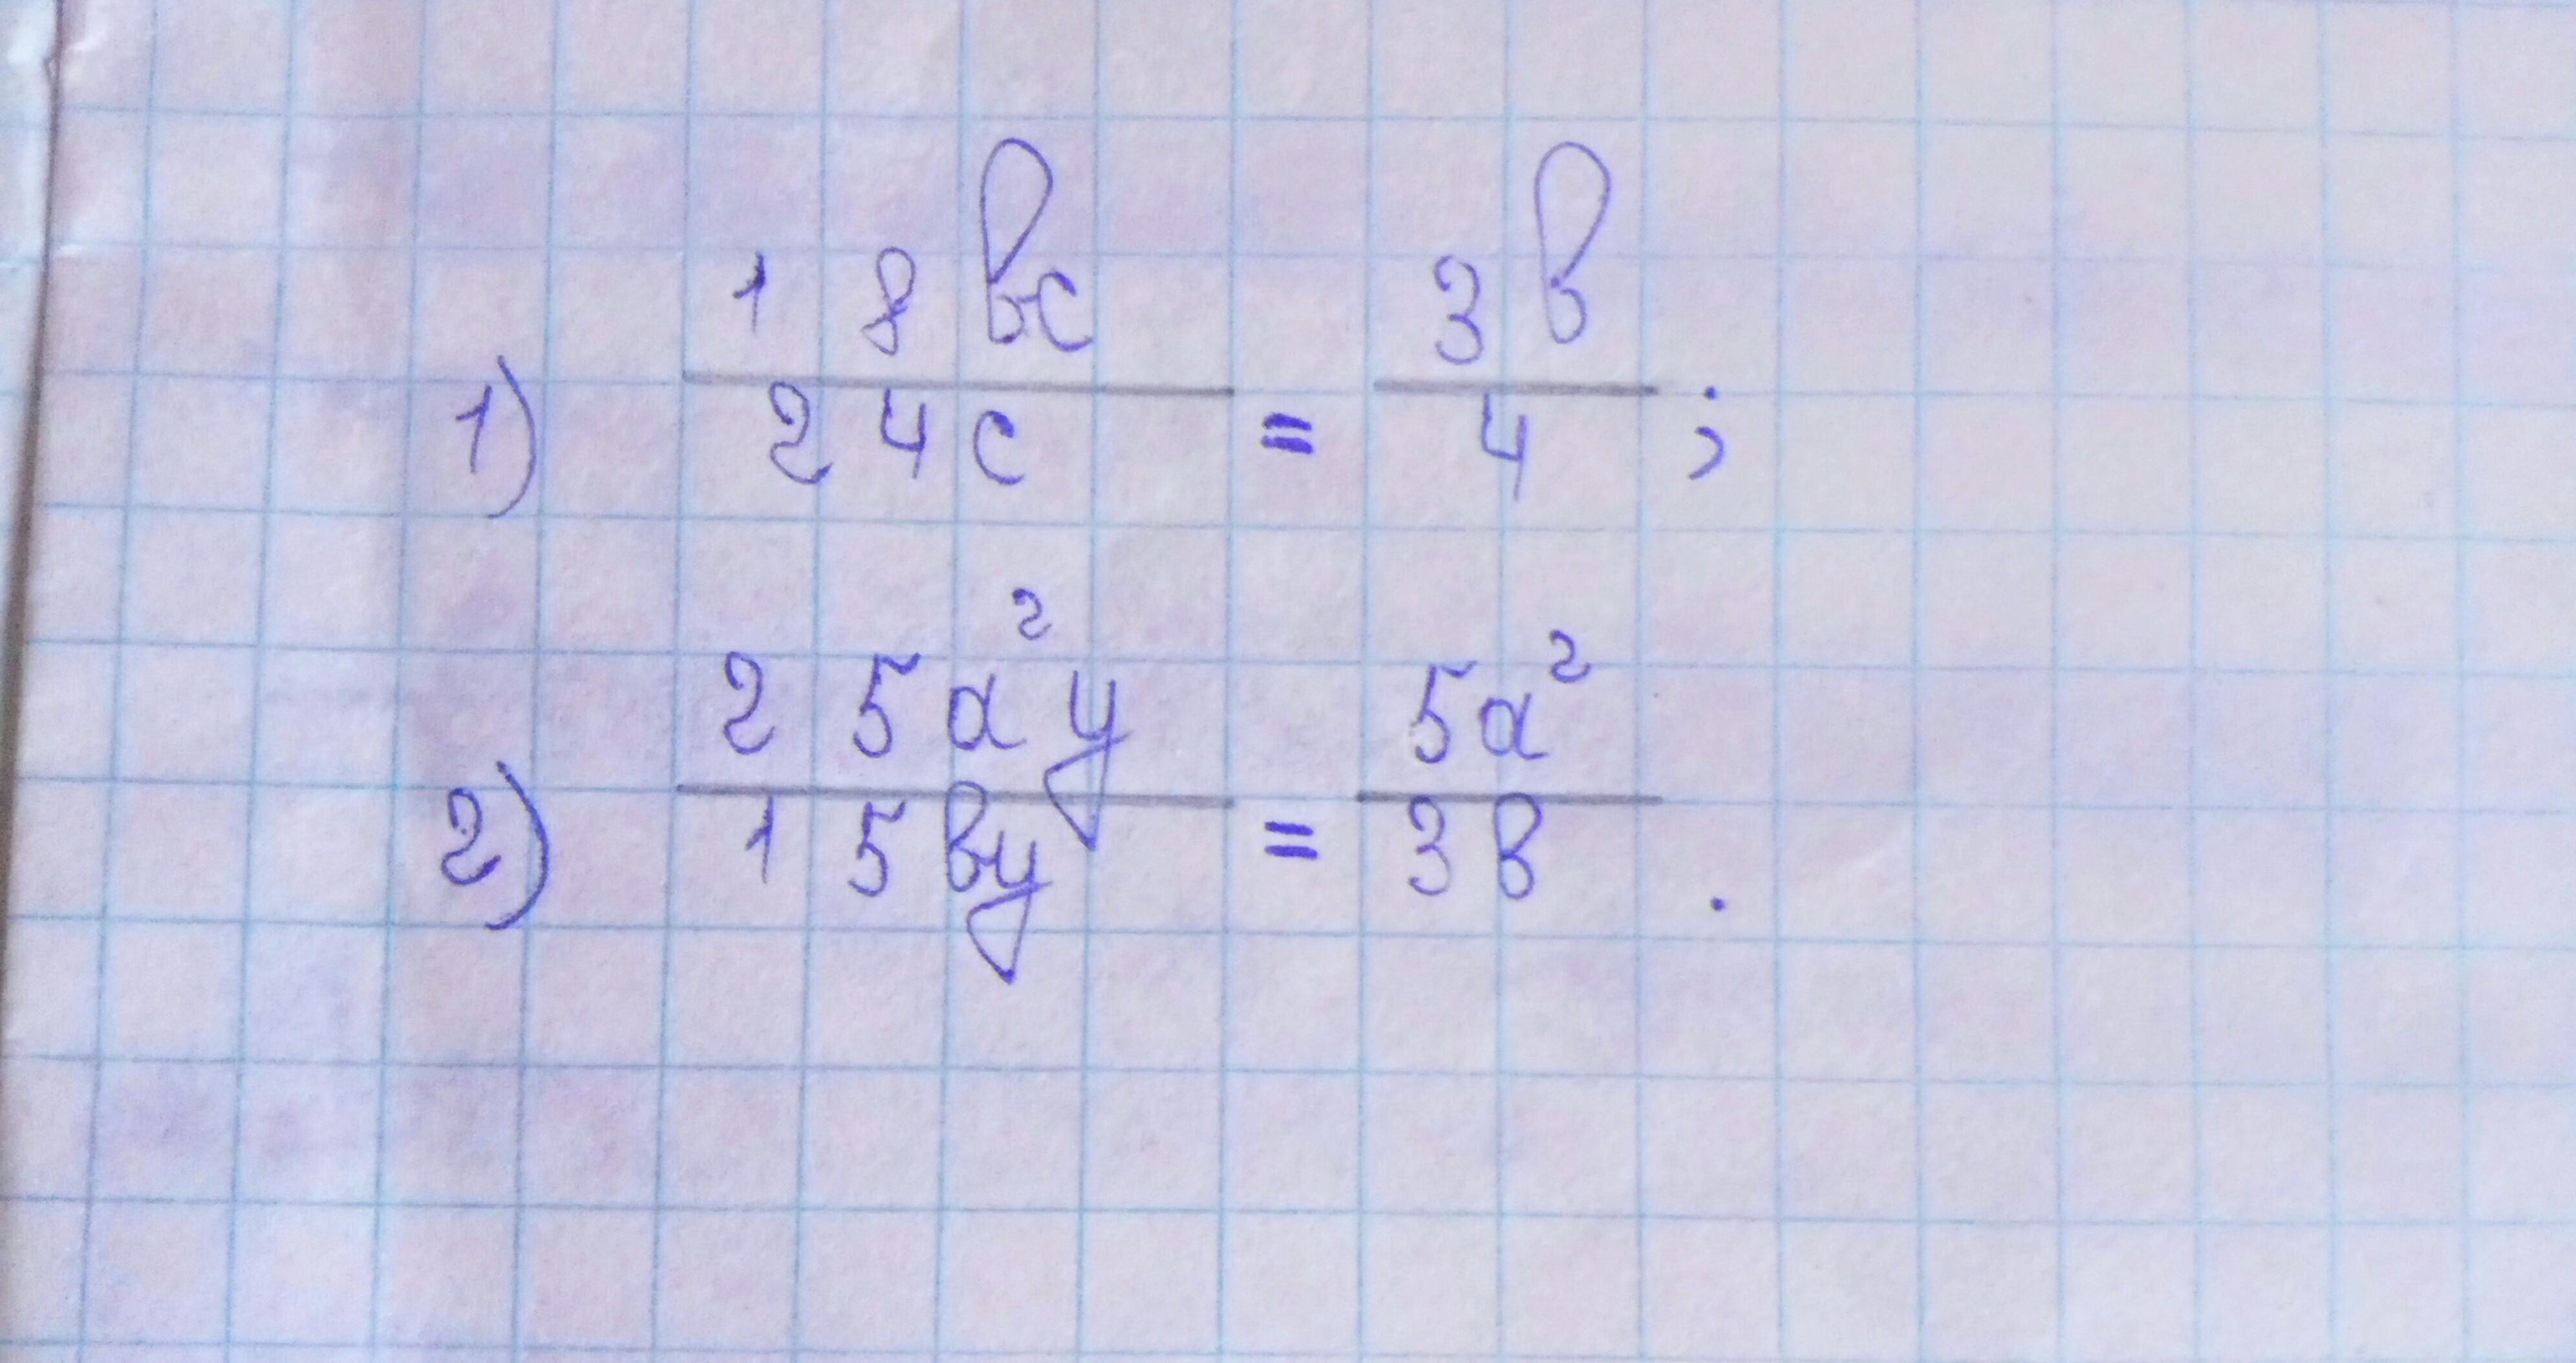 1) 18bc/24c = 3b/4;
2) 25a²y/15by = 5a²/3b.